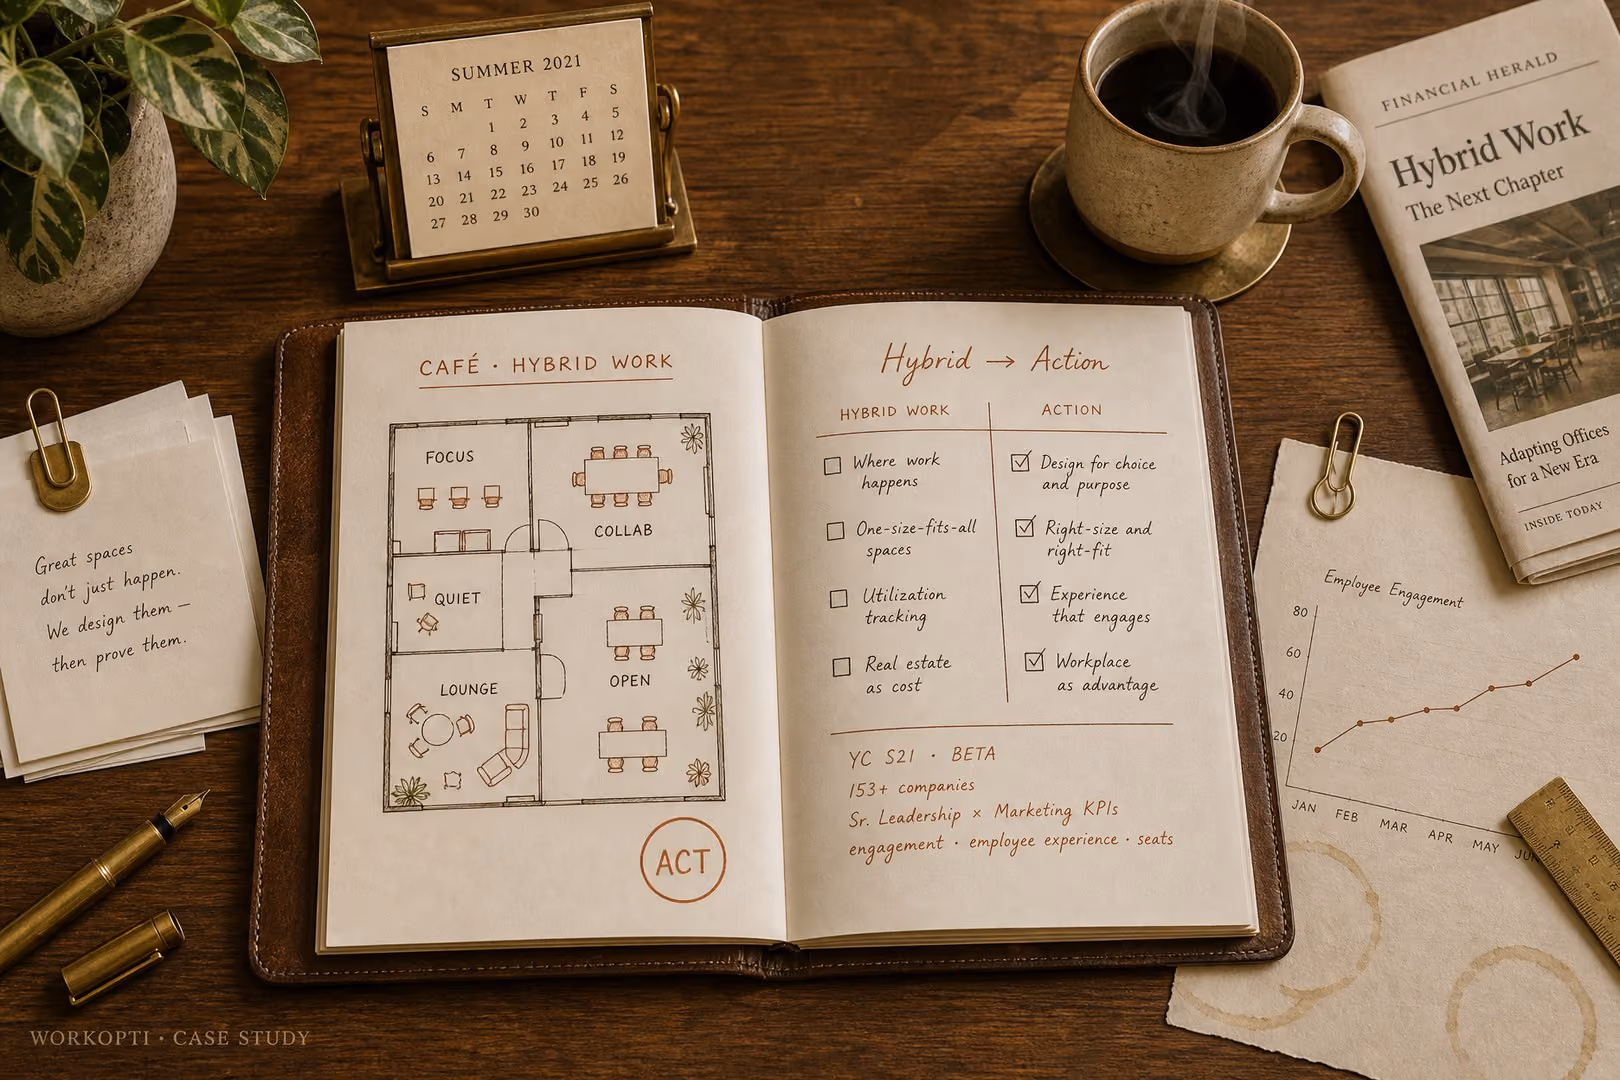 SUMMER 2021
S M T W T F S
1 2 3 4 5
6 7 8 9 10 11 12
13 14 15 16 17 18 19
20 21 22 23 24 25 26
27 28 29 30
FINANCIAL HERALD
Hybrid Work
The Next Chapter
Adapting Offices
for a New Era
INSIDE TODAY
Great spaces
don't just happen.
We design them —
then prove them.
CAFÉ · HYBRID WORK
FOCUS
COLLAB
QUIET
LOUNGE
OPEN
ACT
Hybrid → Action
HYBRID WORK
ACTION
Where work
happens
Design for choice
and purpose
One-size-fits-all
spaces
Right-size and
right-fit
Utilization
tracking
Experience
that engages
Real estate
as cost
Workplace
as advantage
YC S21 · BETA
153+ companies
Sr. Leadership × Marketing KPIs
engagement · employee experience · seats
Employee Engagement
80
60
40
20
JAN FEB MAR APR MAY
WORKOPTI · CASE STUDY